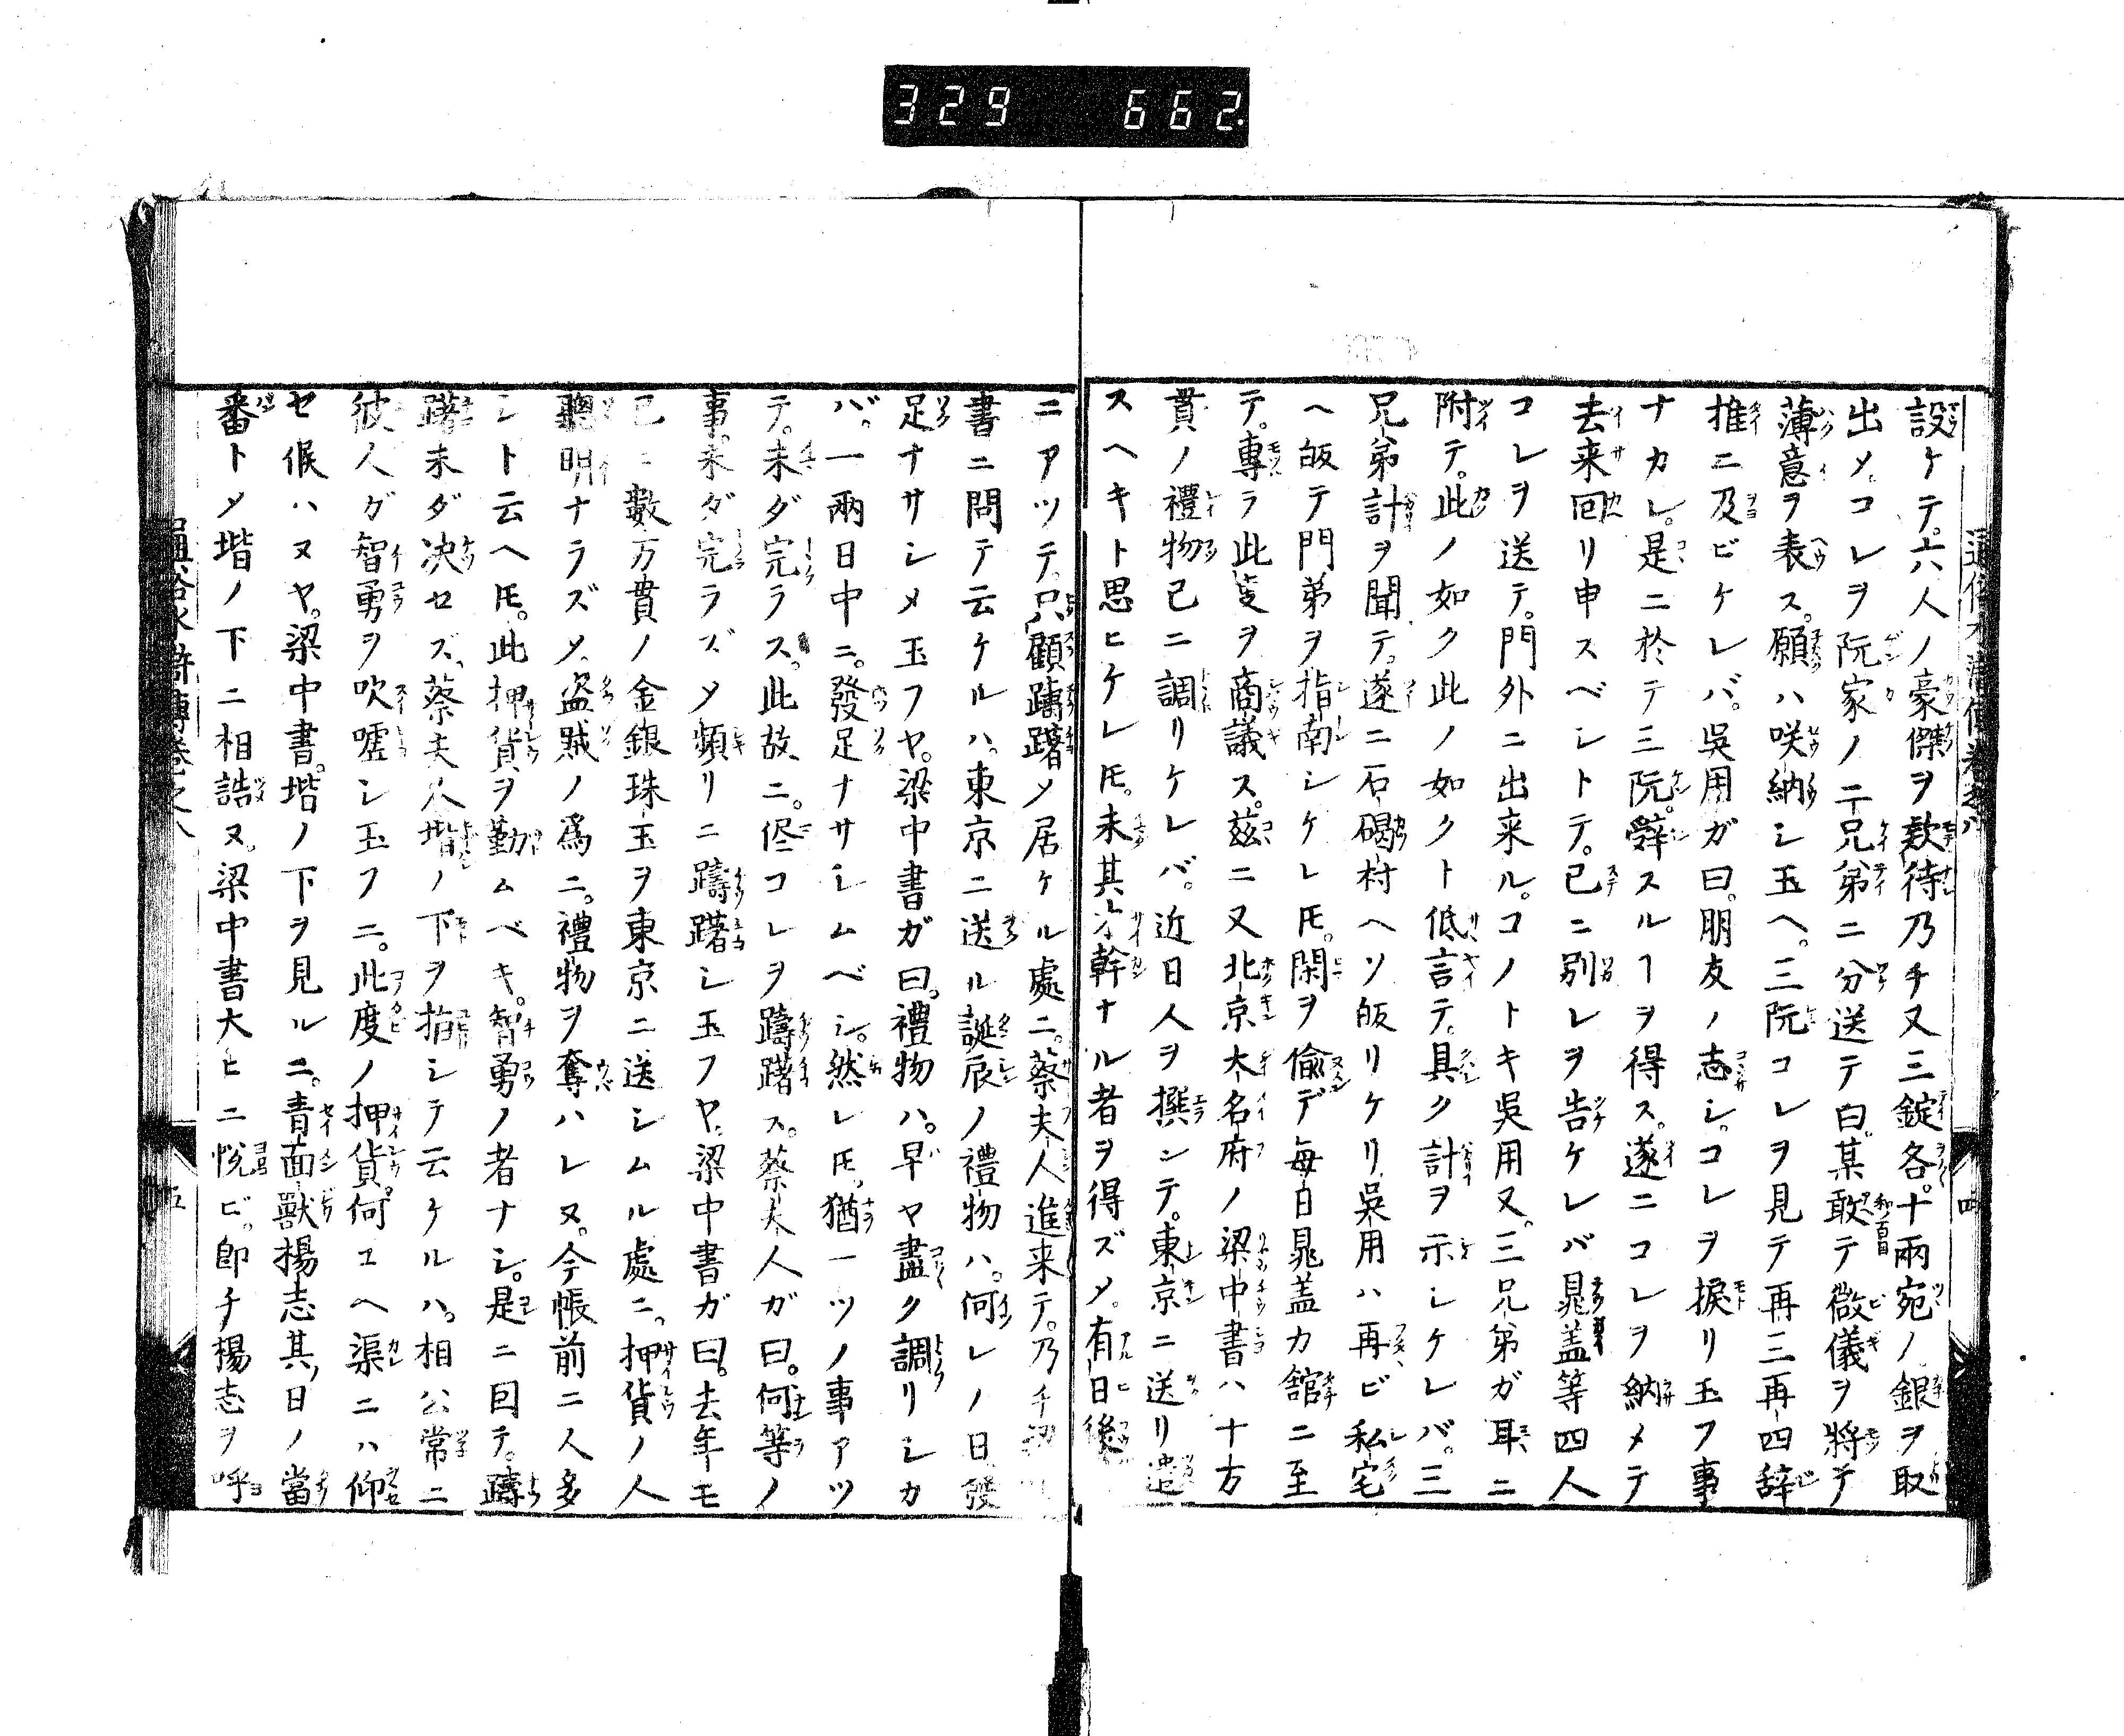 329 662.
設ケテ。六人ノ豪傑ヲ欵待乃チ又三錠各。十兩宛ノ銀ヲ取
出メ。コレヲ阮家ノ二兄弟ニ分送テ曰。某敢テ微儀ヲ將テ
薄意ヲ表ス。願ハ咲納シ玉ヘ。三阮コレヲ見テ再三再四辞
推ニ及ビケレバ。吳用ガ曰。朋友ノ志シ。コレヲ捩リ玉フ事
ナカレ。是ニ於テ三阮。辤スルヿヲ得ス。遂ニコレヲ納メテ
去来囘リ申スベシトテ。已ニ別レヲ告ケレバ晁盖等四人
コレヲ送テ。門外ニ出来ル。コノトキ吳用又。三兄弟ガ耳ニ
附テ。此ノ如ク此ノ如クト低言テ。具ク計ヲ示シケレバ。三
兄弟計ヲ聞テ。遂ニ石碣村ヘソ皈リケリ。吳用ハ再ビ私宅
ヘ皈テ門弟ヲ指南シケレ𪜈。閑ヲ偸デ每日晁盖カ舘ニ至
テ。專ラ此叓ヲ商議ス。茲ニ又北京大名府ノ梁中書ハ十万
貫ノ禮物已ニ調リケレバ。近日人ヲ撰ンテ。東京ニ送リ遣
スヘキト思ヒケレ𪜈。未其才幹ナル者ヲ得ズメ。有日後
ニアツテ。只顧躊躇メ居ケル處ニ。蔡夫人進来テ。乃チ
書ニ問テ云ケルハ。東京ニ送ル誕辰ノ禮物ハ。何レノ日發
足ナサシメ玉フヤ。梁中書ガ曰。禮物ハ。早ヤ盡ク調リシカ
バ。一兩日中ニ。發足ナサシムベシ。然レ𪜈。猶一ツノ事アツ
テ。未ダ完ラス。此故ニ。侭コレヲ躊躇ス。蔡夫人ガ曰。何等ノ
事。未ダ完ラズメ頻リニ躊躇シ玉フヤ。梁中書ガ曰。去年モ
已ニ數万貫ノ金銀珠玉ヲ東京ニ送シムル處ニ。押貨ノ人
聰明ナラズメ。盗賊ノ爲ニ。禮物ヲ奪ハレヌ。今帳前ニ人多
シト云ヘ𪜈。此押貨ヲ勤ムベキ。智勇ノ者ナシ。是ニ囘テ。躊
躇未ダ决セズ。蔡夫人堦ノ下ヲ指シテ云ケルハ。相公常ニ
彼人ガ智勇ヲ吹嘘シ玉フニ。此度ノ押貨。何エヘ渠ニハ仰
セ候ハヌヤ。梁中書。堦ノ下ヲ見ルニ。青面獸楊志其日ノ當
番トメ堦ノ下ニ相詰ヌ。梁中書大ヒニ悦ビ。卽チ楊志ヲ呼